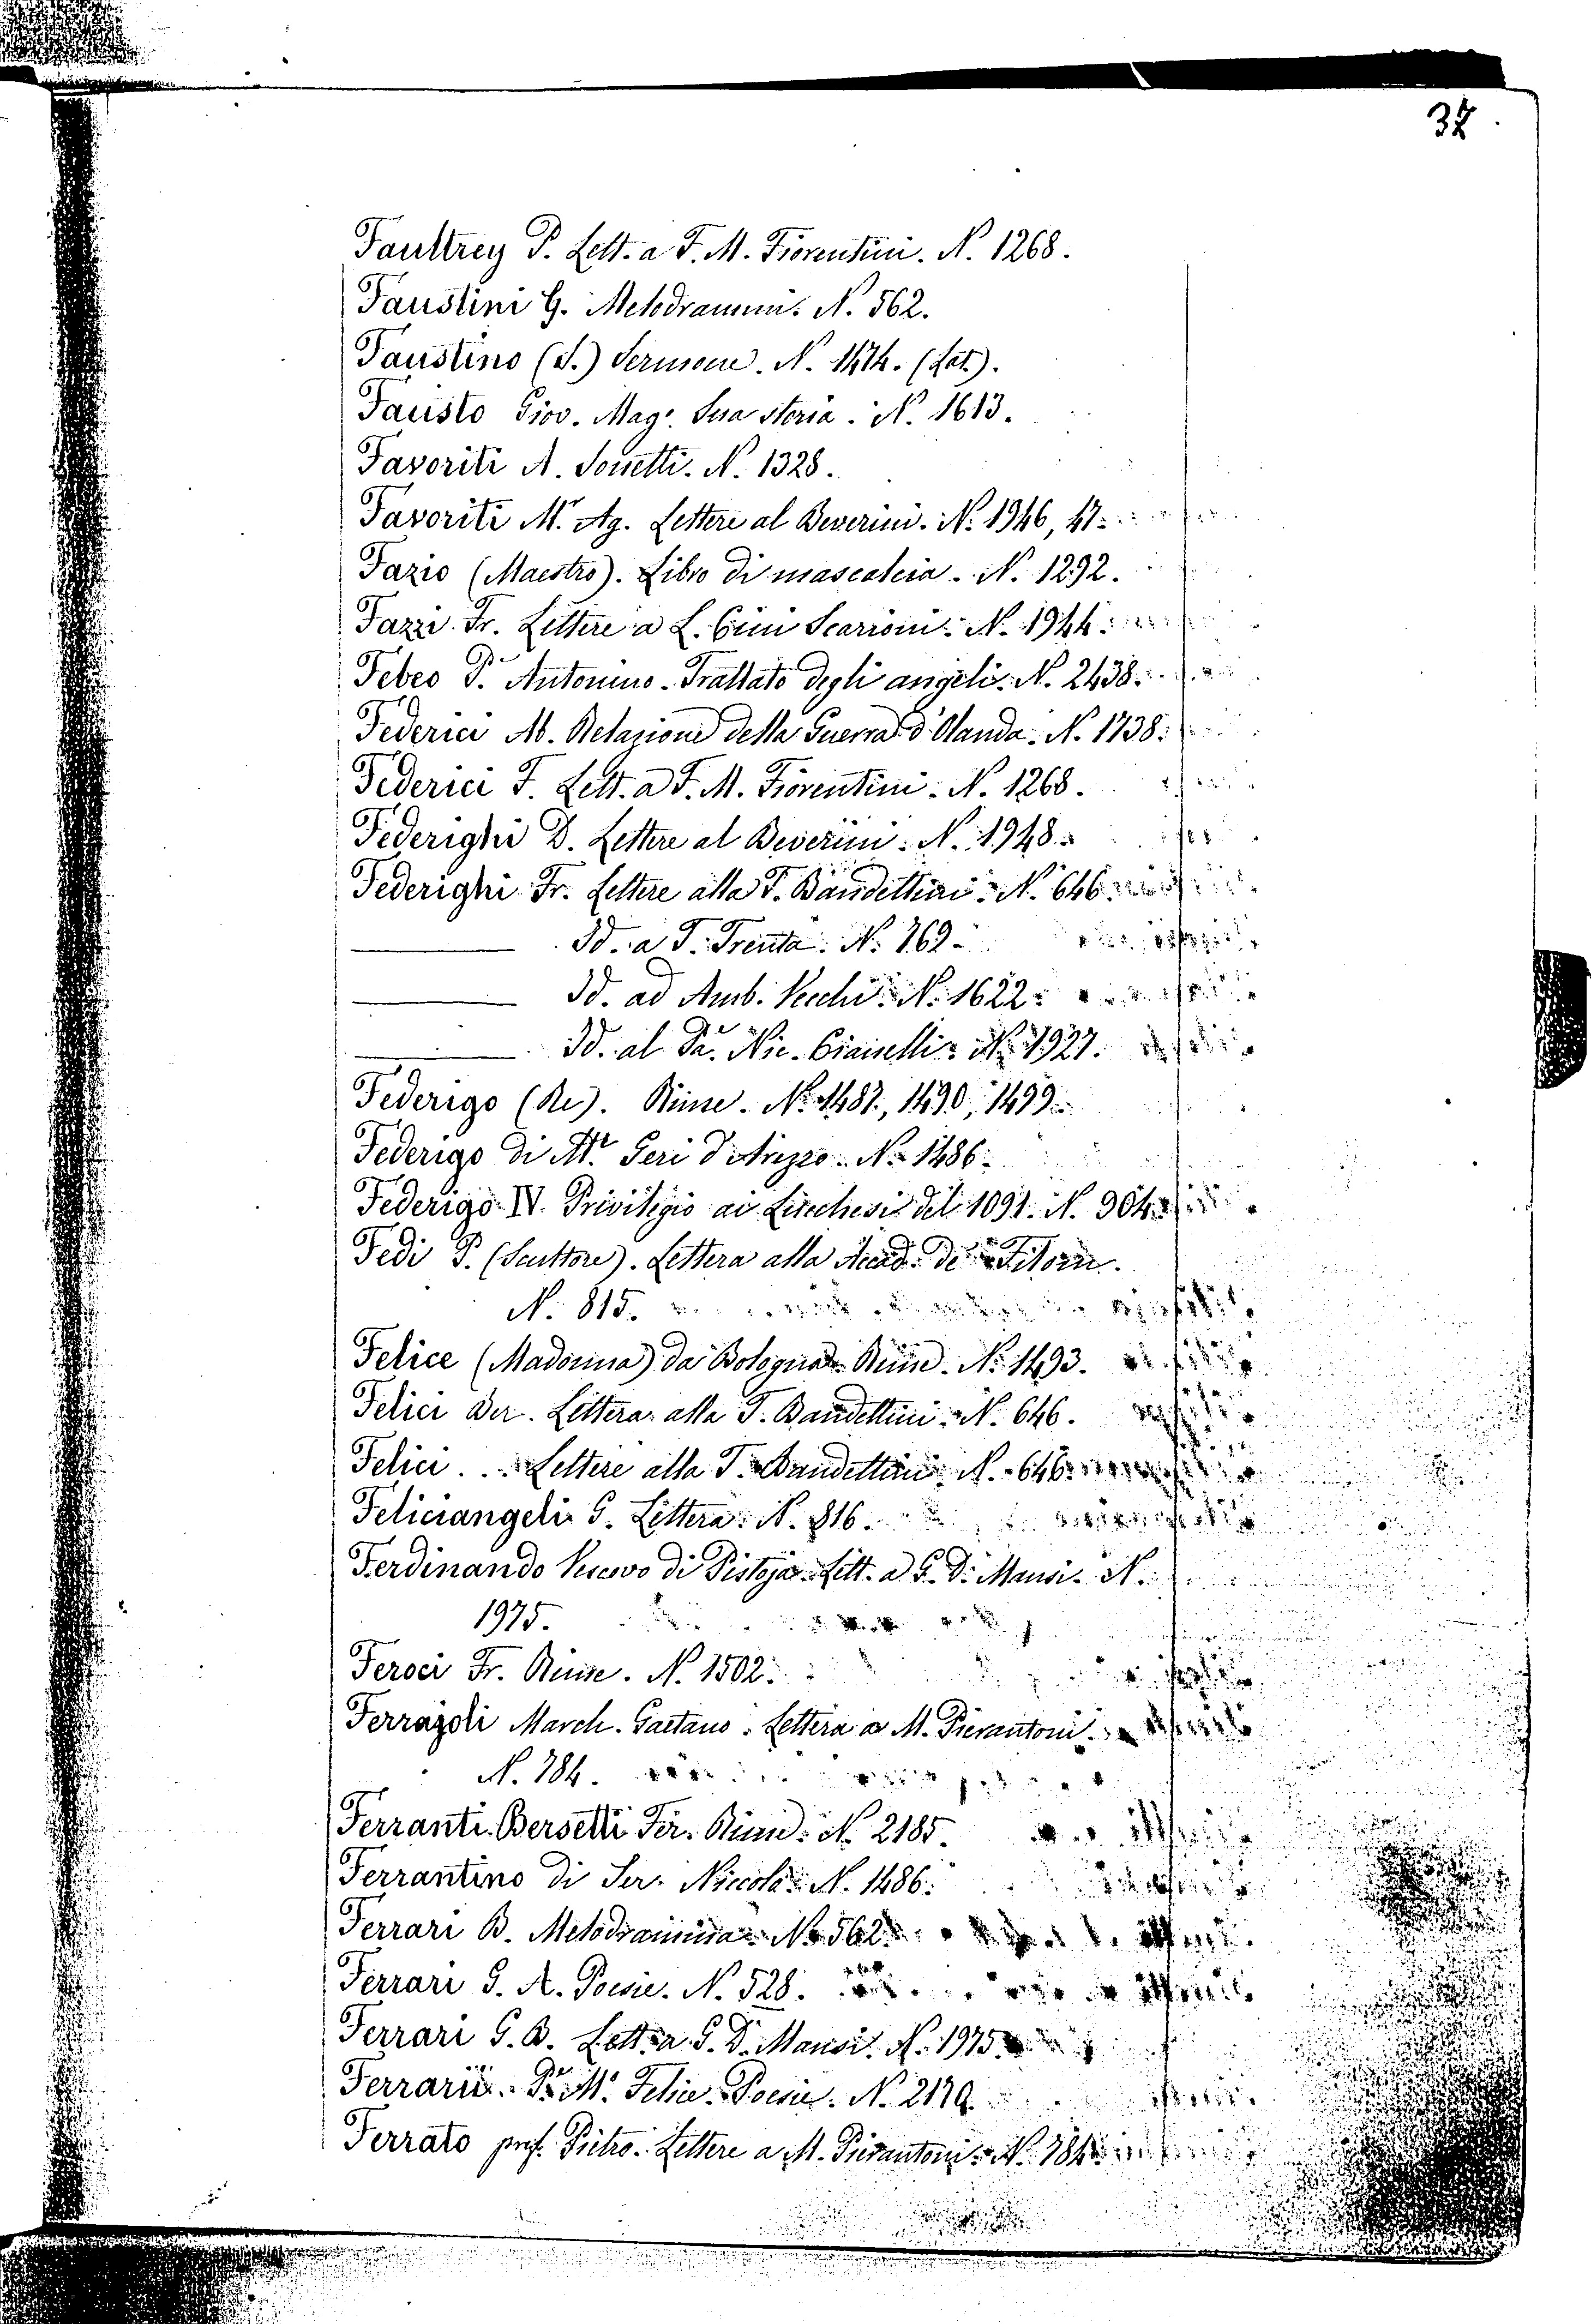 37
Faultrey P. Lett. a F. M. Fiorentini. N. 1268.
Faustini G. Melodrammi. N. 562.
Faustino (S.) Sermone. N. 1474. (Lat.).
Fausto Giov. Mago. Sua storia. N. 1613.
Favoriti A. Sonetti. N. 1328.
Favoriti Mr. Ag. Lettere al Beverini. N. 1946, 47.
Fazio (Maestro). Libro di mascalcia. N. 1292.
Fazzi Fr. Lettere a L. Cini Scarrioni. N. 1944.
Febeo P. Antonino. Trattato degli angeli. N. 2438.
Federici Ab. Relazione della Guerra d'Olanda. N. 1738.
Federici F. Lett. a F. M. Fiorentini. N. 1268.
Federighi D. Lettere al Beverini. N. 1948.
Federighi Fr. Lettere alla T. Bandettini. N. 646.
Id. a T. Trenta. N. 769.
Id. ad Amb. Vecchi. N. 1622.
Id. al Nic. N. 1927.
Federigo (Re). Rime. N. 1487, 1490, 1499.
Federigo di Mr. Geri d'Arezzo. N. 1486.
Federigo IV. Privilegio ai Lucchesi del 1091. N. 904.
Fedi P. (Scultore). Lettera alla Accad. de' Filom.
N. 815.
Felice (Madonna) da Bologna. Rime. N. 1493.
Felici Ber. Lettera alla T. Bandettini. N. 646.
Felici ... Lettere alla T. Bandettini. N. 646.
Feliciangeli G. Lettera. N. 816.
Ferdinando Vescovo di Pistoja. Lett. a G. D. Mansi. N.
1975.
Feroci Fr. Rime. N. 1502.
Ferrajoli March. Gaetano. Lettera a M. Pierantoni.
N. 784.
Ferranti Bersetti Fer. Rime. N. 2185.
Ferrantino di Ser. Niccolò. N. 1486.
Ferrari B. Melodramma. N. 562.
Ferrari G. A. Poesie. N. 528.
Ferrari G. B. Lett. a G. D. Mansi. N. 1975.
Ferrarii Pr. Mr. Felice. Poesie. N. 2179.
Ferrato prof. Pietro. Lettere a M. Pierantoni. N. 784.